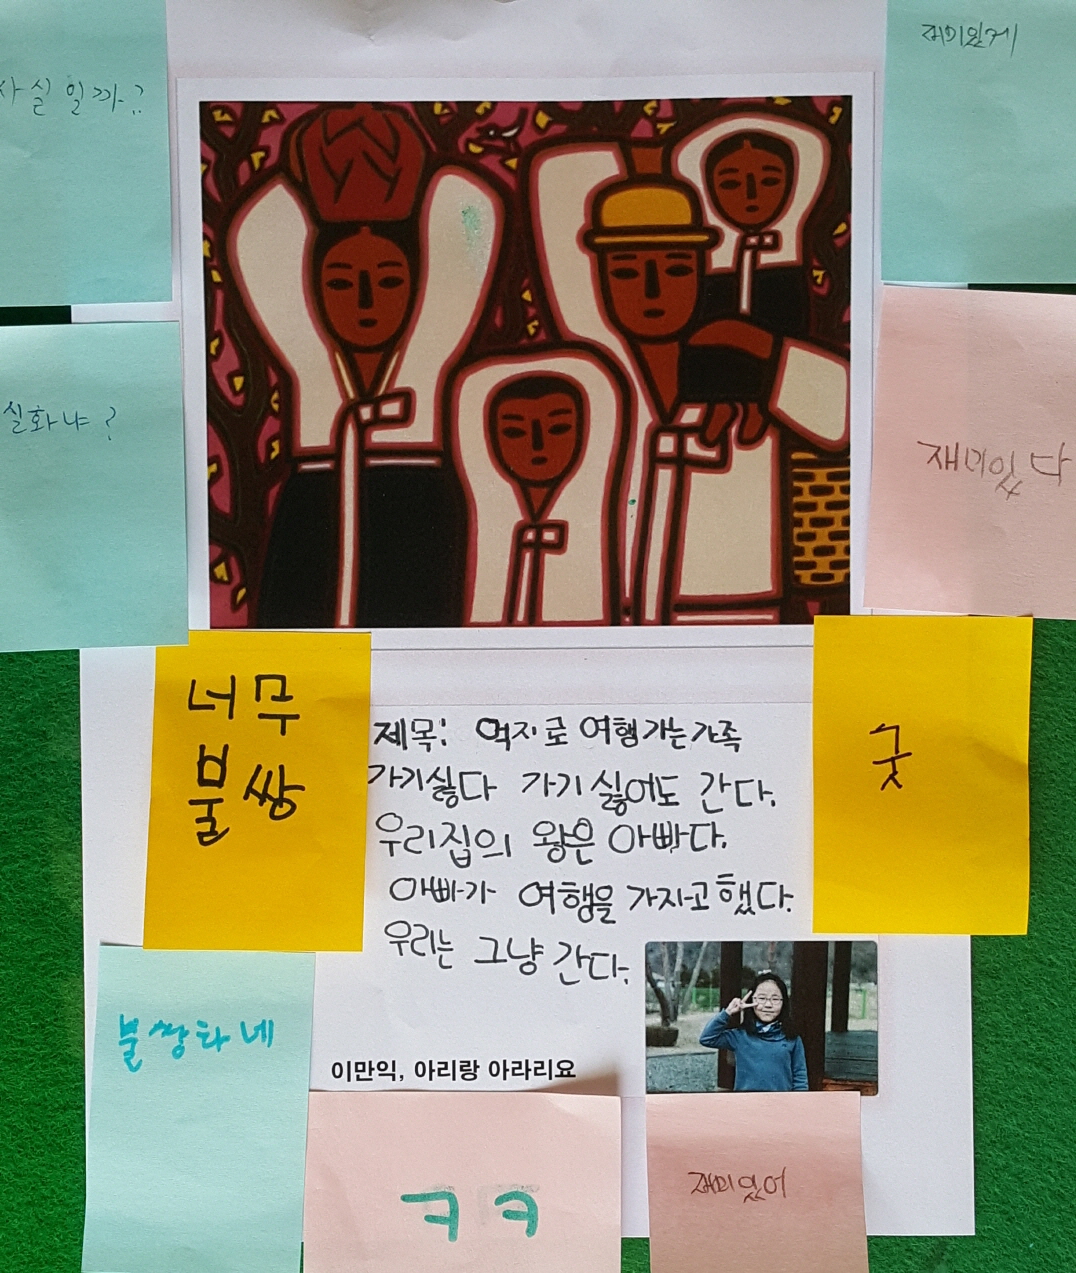 사실일까?
재미있게
실화냐?
재미있다
너무
불쌍
굿
제목: 억지로 여행가는가족
가기싫다 가기 싫어도 간다.
우리집의 왕은 아빠다.
아빠가 여행을 가자고 했다.
우리는 그냥 간다.
불쌍하네
이만익, 아리랑 아라리요
ㅋㅋ
재미있어